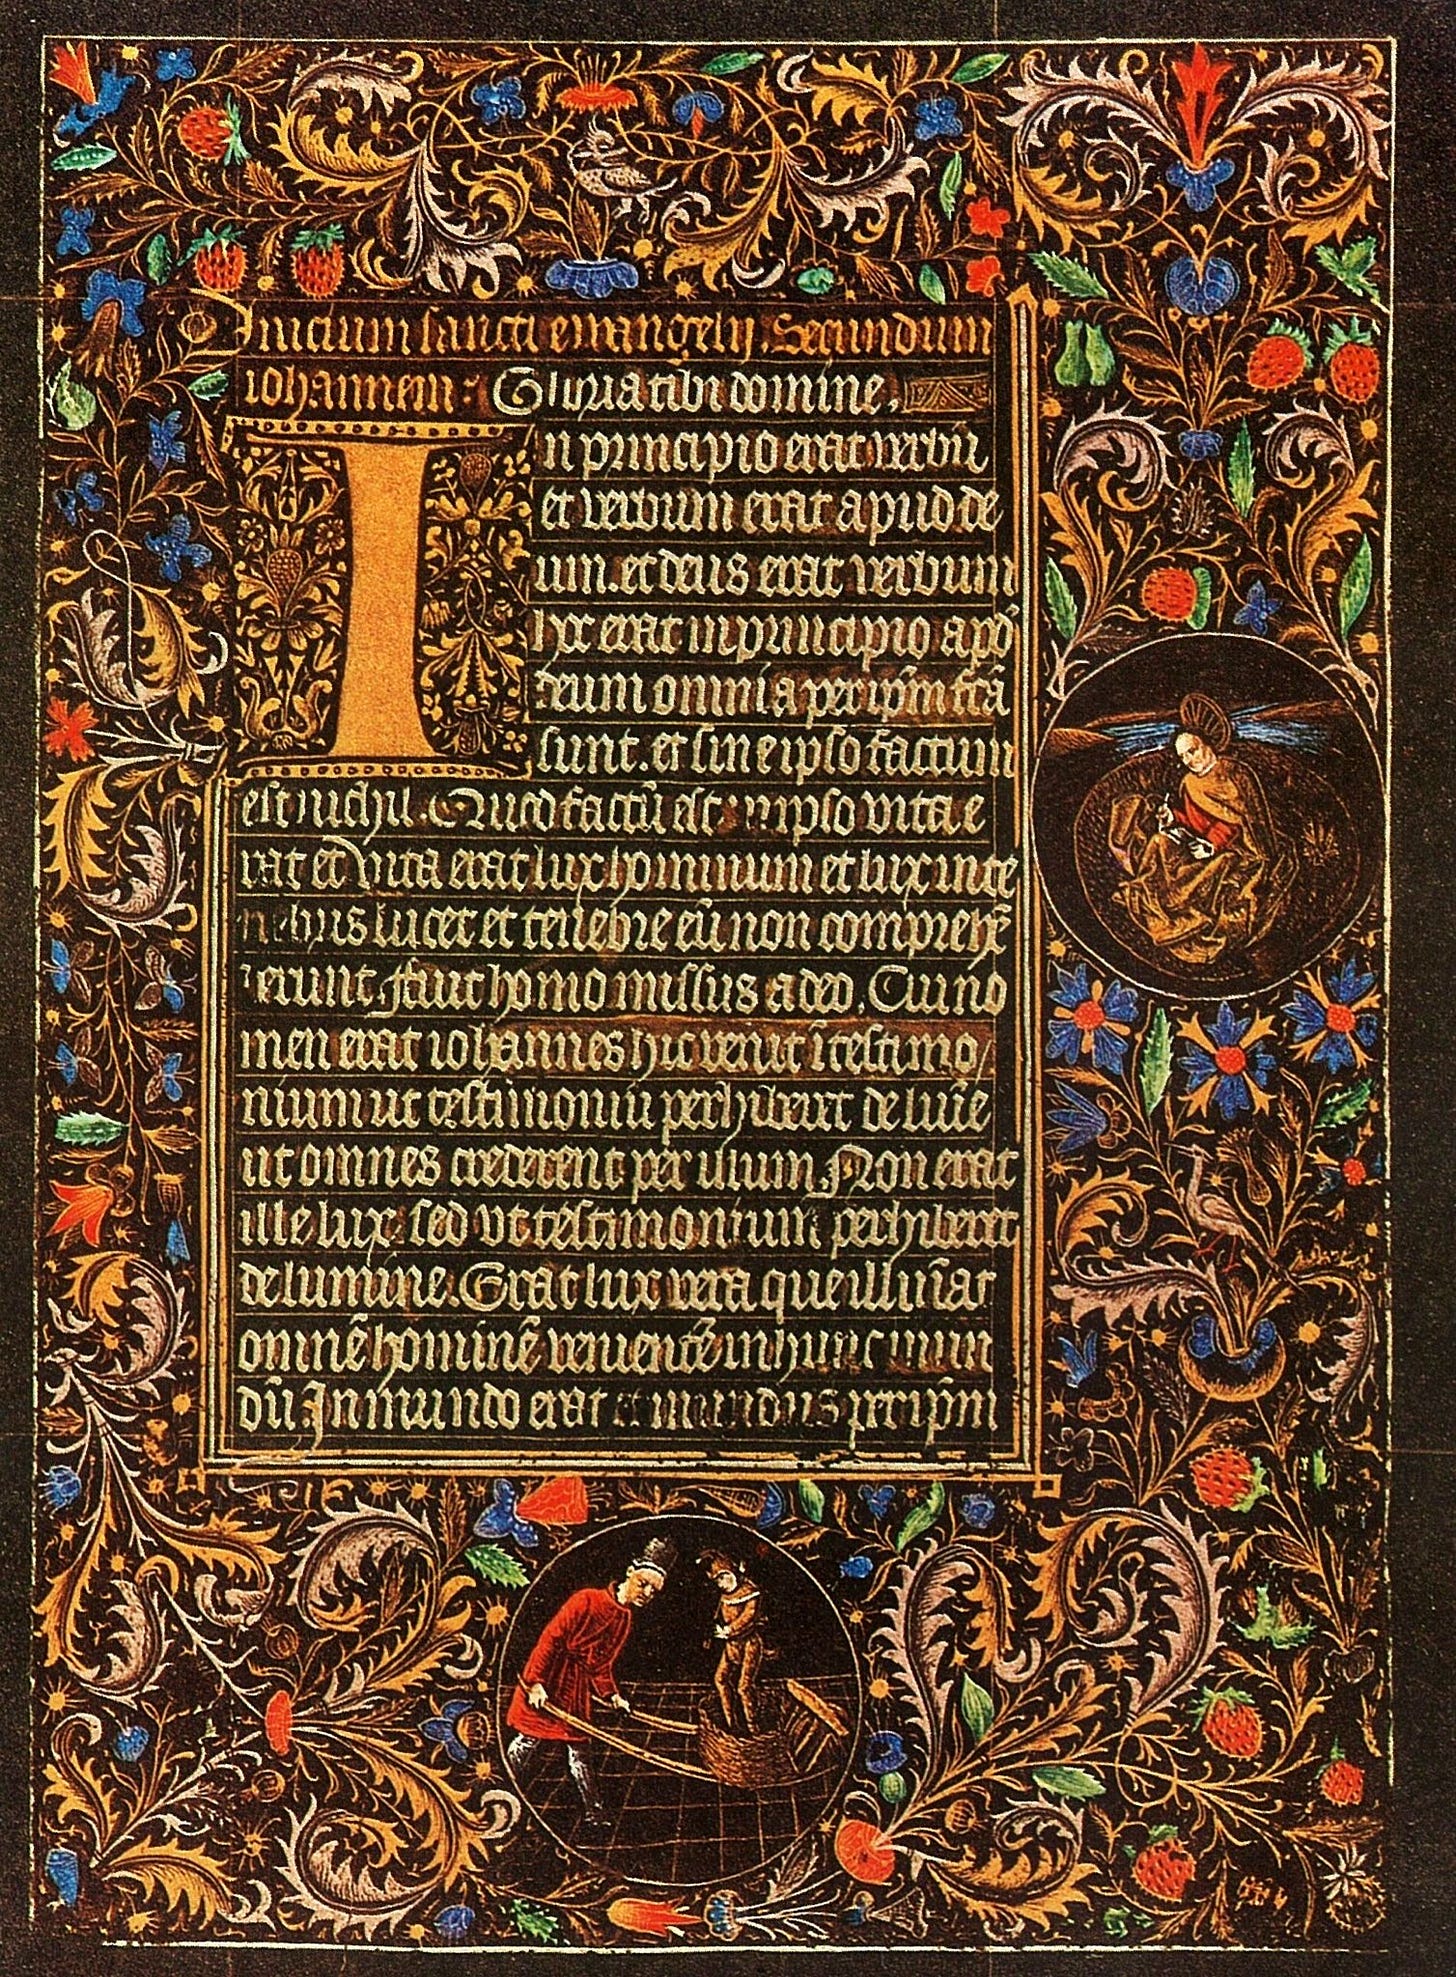 Inicium sancti euuangelij. Secundum
iohannem: Gloria tibi domine.
In principio erat verbũ
et verbum erat apud de
um. et deus erat verbum
hoc erat in principio apd̃
deum omnia per ip̃m fc̃a
sunt. et sine ipso factum
est nichil. Quod factũ est in ipso vita e
rat et vita erat lux hominum et lux in te
nebris lucet et tenebre eũ non comprehẽ
derunt. fuit homo missus a deo. Cui no
men erat iohannes hic venit ĩ testimo
nium ut testimoniũ perhiberet de lum̃e
ut omnes crederent per illum. Non erat
ille lux sed vt testimonium perhiberet
de lumine. Erat lux vera que illuĩat
omnẽ hominẽ venientẽ in hunc mun
dũ. In mundo erat et mundus per ip̃m